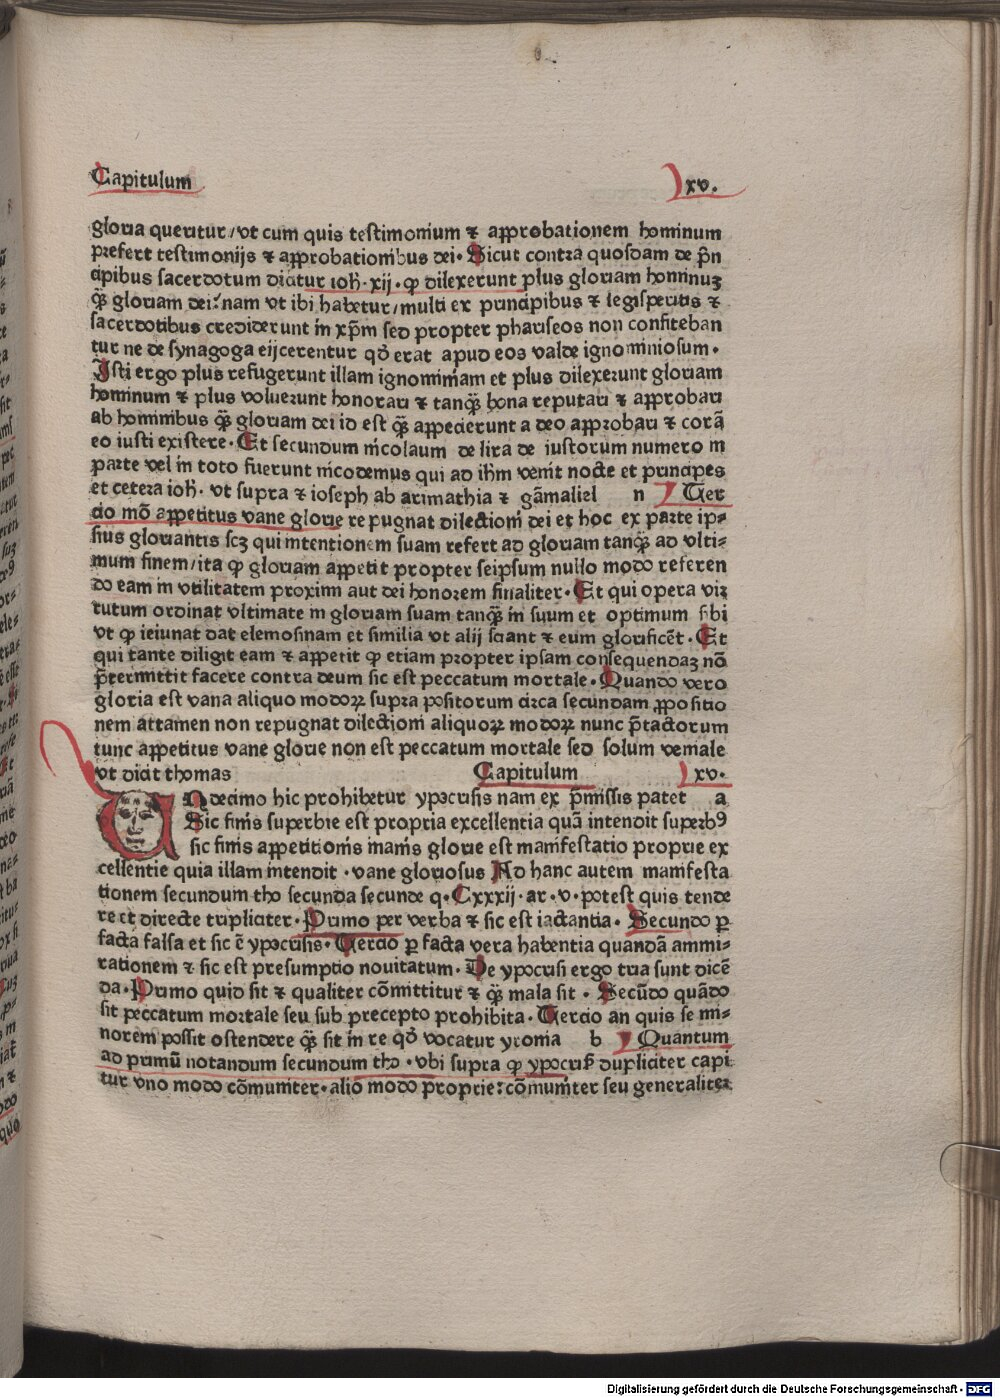 Capitulum xv.
gloria queritur/ vt cum quis testimonium ⁊ approbationem hominum
prefert testimonijs ⁊ approbationibus dei. Sicut contra quosdam de pn̄
cipibus sacerdotum dicitur ioh. xij. ꝙ dilexerunt plus gloriam hominuꝫ
qͣ̄ gloriam dei: nam vt ibi habetur/ multi ex principibus ⁊ legisperitis ⁊
sacerdotibus crediderunt in xp̄m sed propter phariseos non confiteban
tur ne de synagoga eijcerentur qd̓ erat apud eos valde ignominiosum.
Isti ergo plus refugerunt illam ignominiam et plus dilexerunt gloriam
hominum ⁊ plus voluerunt honorari ⁊ tanqͣ̄ bona reputari ⁊ approbari
ab hominibus qͣ̄ gloriam dei id est qͣ̄ appecierunt a deo approbari ⁊ corā
eo iusti existere. Et secundum nicolaum de lira de iustorum numero in
parte vel in toto fuerunt nicodemus qui ad ih̄m venit nocte et principes
et cetera ioh. vt supra ⁊ ioseph ab arimathia ⁊ gāmaliel n Ter
cio mō appetitus vane glorie repugnat dilectioni dei et hoc ex parte ip⸗
sius gloriantis scꝫ qui intentionem suam refert ad gloriam tanqͣ̄ ad vlti⸗
mum finem/ ita ꝙ gloriam appetit propter seipsum nullo modo referen
do eam in vtilitatem proximi aut dei honorem finaliter. Et qui opera vir
tutum ordinat vltimate in gloriam suam tanqͣ̄ in suum et optimum sibi
vt ꝙ ieiunat dat elemosinam et similia vt alij sciant ⁊ eum glorificēt. Et
qui tante diligit eam ⁊ appetit ꝙ etiam propter ipsam consequendaꝫ nō
p̄termittit facere contra deum sic est peccatum mortale. Quando vero
gloria est vana aliquo modoꝝ supra positorum circa secundam ꝓpositio
nem attamen non repugnat dilectioni aliquoꝝ modoꝝ nunc p̄tactorum
tunc appetitus vane glorie non est peccatum mortale sed solum veniale
vt dicit thomas Capitulum xv.
Undecimo hic prohibetur ypocrisis nam ex p̄missis patet a
Sic finis superbie est propria excellentia quā intendit superbꝰ
sic finis appetitionis inanis glorie est manifestatio proprie ex
cellentie quia illam intendit . vane gloriosus Ad hanc autem manifesta
tionem secundum tho secunda secunde q. Cxxxij. ar. v. potest quis tende
re et directe tripliciter. Primo per verba ⁊ sic est iactantia. Secundo ꝑ
facta falsa et sic ē ypocrisis. Tercio ꝑ facta vera habentia quandā ammi⸗
rationem ⁊ sic est presumptio nouitatum. De ypocrisi ergo tria sunt dicē
da. Primo quid sit ⁊ qualiter cōmittitur ⁊ qͣ̄ mala sit . Secūdo quādo
sit peccatum mortale seu sub precepto prohibita. Tercio an quis se mi⸗
norem possit ostendere qͣ̄ sit in re qd̓ vocatur yronia b Quantum
ad primū notandum secundum tho. vbi supra ꝙ ypocrisꝭ dupliciter capi
tur vno modo cōmuniter. alio modo proprie: cōmuniter seu generaliter
Digitalisierung gefördert durch die Deutsche Forschungsgemeinschaft - DFG